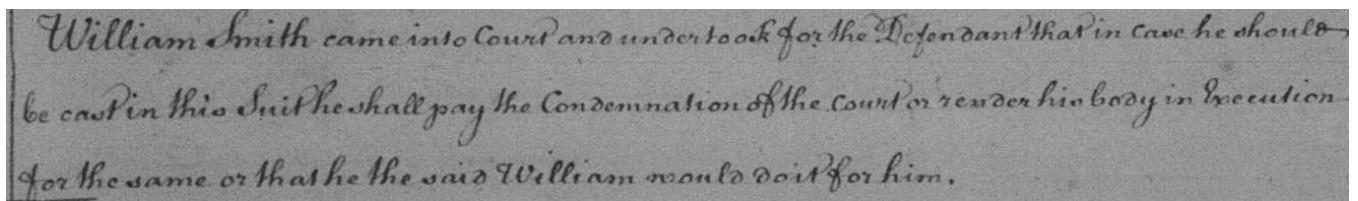 William Smith came into Court and undertook for the Defendant that in case he should
be cast in this Suit he shall pay the Condemnation of the Court or render his body in Execution
for the same or that he the said William would do it for him.